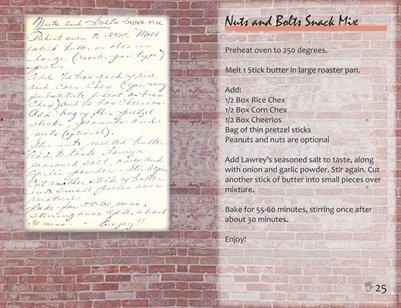 Nuts and Bolts Snack Mix
Preheat oven to 250°. Melt
1 stick butter or oleo in
large (roaster pan type)
pan.
Add ½ box each of rice
and Corn Chex
substitute
Chex) and ½ box Cheerios.
Add bag of thin pretzel
sticks, peanuts and
nuts (optional).
Stir into melted butter
Add to taste Lawry's
seasoned salt, onion and
Garlic powder. Stir again
Cut another stick of butter
into small pieces over
mixture.
Bake for 55-60 mins,
stirring once after about
30 mins. Enjoy!!
Nuts and Bolts Snack Mix
Preheat oven to 250 degrees.
Melt 1 Stick butter in large roaster pan.
Add:
1/2 Box Rice Chex
1/2 Box Corn Chex
1/2 Box Cheerios
Bag of thin pretzel sticks
Peanuts and nuts are optional
Add Lawrey's seasoned salt to taste, along
with onion and garlic powder. Stir again. Cut
another stick of butter into small pieces over
mixture.
Bake for 55-60 minutes, stirring once after
about 30 minutes.
Enjoy!
25